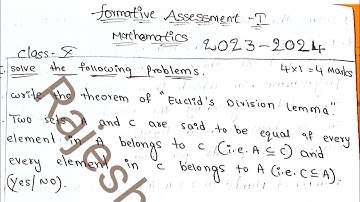 formative Assessment - I
Mathematics 2023-2024
class-X
solve the following problems. 4x1=4 Marks
write the theorem of "Euclid's Division Lemma"
Two sets A and C are said to be equal if every
element in A belongs to C (i.e. A ⊆ C) and
every element in C belongs to A (i.e. C ⊆ A).
(Yes/No).
Rajesh